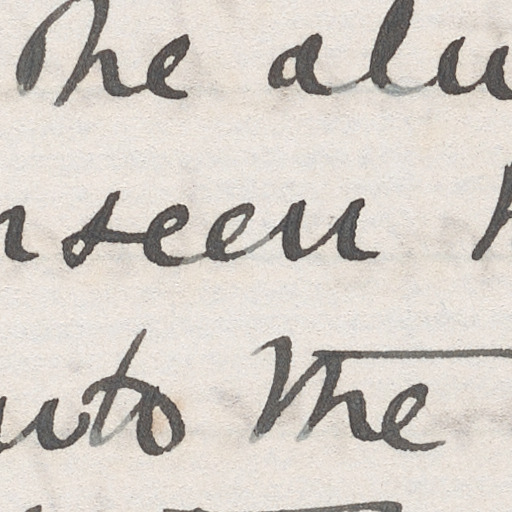 The alu
nseen
into the